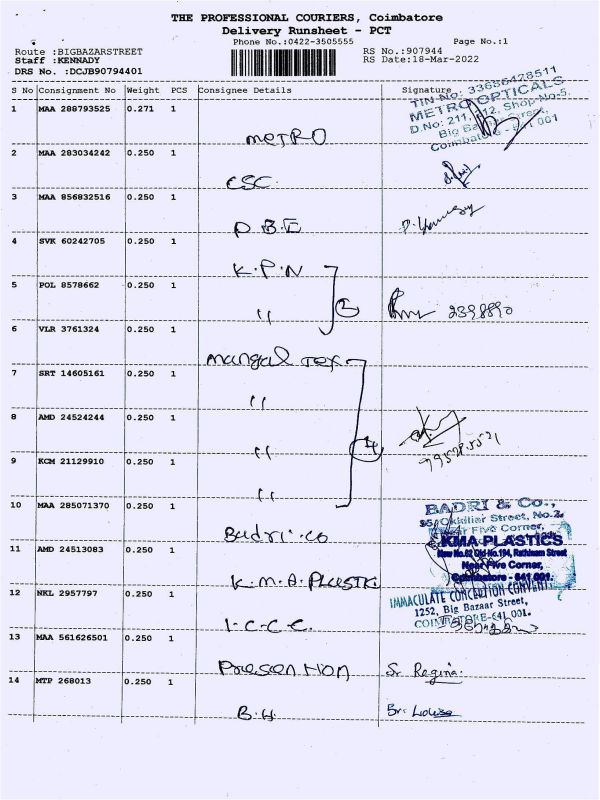 THE PROFESSIONAL COURIERS, Coimbatore
Delivery Runsheet - PCT
Phone No.:0422-3505555 Page No.:1
Route :BIGBAZARSTREET RS No.:907944
Staff :KENNADY RS Date:18-Mar-2022
DRS No. :DCJB90794401
S No Consignment No Weight PCS Consignee Details Signature
1 MAA 288793525 0.271 1 METRO
TIN No: 33686428511
METRO OPTICALS
D.No: 211, 212, Shop No:5,
Big Bazaar Street,
Coimbatore - 641 001
2 MAA 283034242 0.250 1 CSC
3 MAA 856832516 0.250 1 P.B.E
4 SVK 60242705 0.250 1 K.P.N
5 POL 8578662 0.250 1 " 2
6 VLR 3761324 0.250 1 Mangal Tex
7 SRT 14605161 0.250 1 "
8 AMD 24524244 0.250 1 " 4
9 KCM 21129910 0.250 1 "
10 MAA 285071370 0.250 1 Badri.co
BADRI & Co.,
Street, No-2.
Near Five Corner,
11 AMD 24513083 0.250 1 K.M.A. Plastic
KMA PLASTICS
New No.62 Old No.194, Rathinam Street
Near Five Corner,
Coimbatore - 641 001.
12 NKL 2957797 0.250 1 I.C.C.C.
IMMACULATE CONCEPTION CONVENT
1252, Big Bazaar Street,
COIMBATORE-641 001.
13 MAA 561626501 0.250 1 Presention Sr. Regina.
14 MTP 268013 0.250 1 B.H. Br: Louise